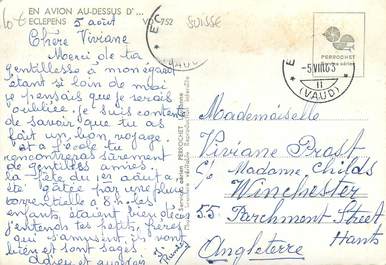 EN AVION AU-DESSUS D'...
ECLEPENS
VD C 752
SUISSE
5 août
Chère Viviane
Merci de ta
gentillesse à mon égard
étant si loin de moi
je pensais que je serais
oubliée. je suis contente
de savoir que tu as
fait un bon voyage.
et à l'école tu
rencontreras sûrement
de gentilles amies.
la fête du 1er août a
été gâtée par une pluie
torrentielle à 8h. les
enfants étaient bien déçus
j'entends tes petits frères
qui s'amusent, ils vont
bien et sont sages
PERROCHET
-5.VIII.63
11
(VAUD)
(VAUD)
Mademoiselle
Viviane Prost
c/o Madame Childs
Winchester
55. Parchment Street
Hants
Angleterre